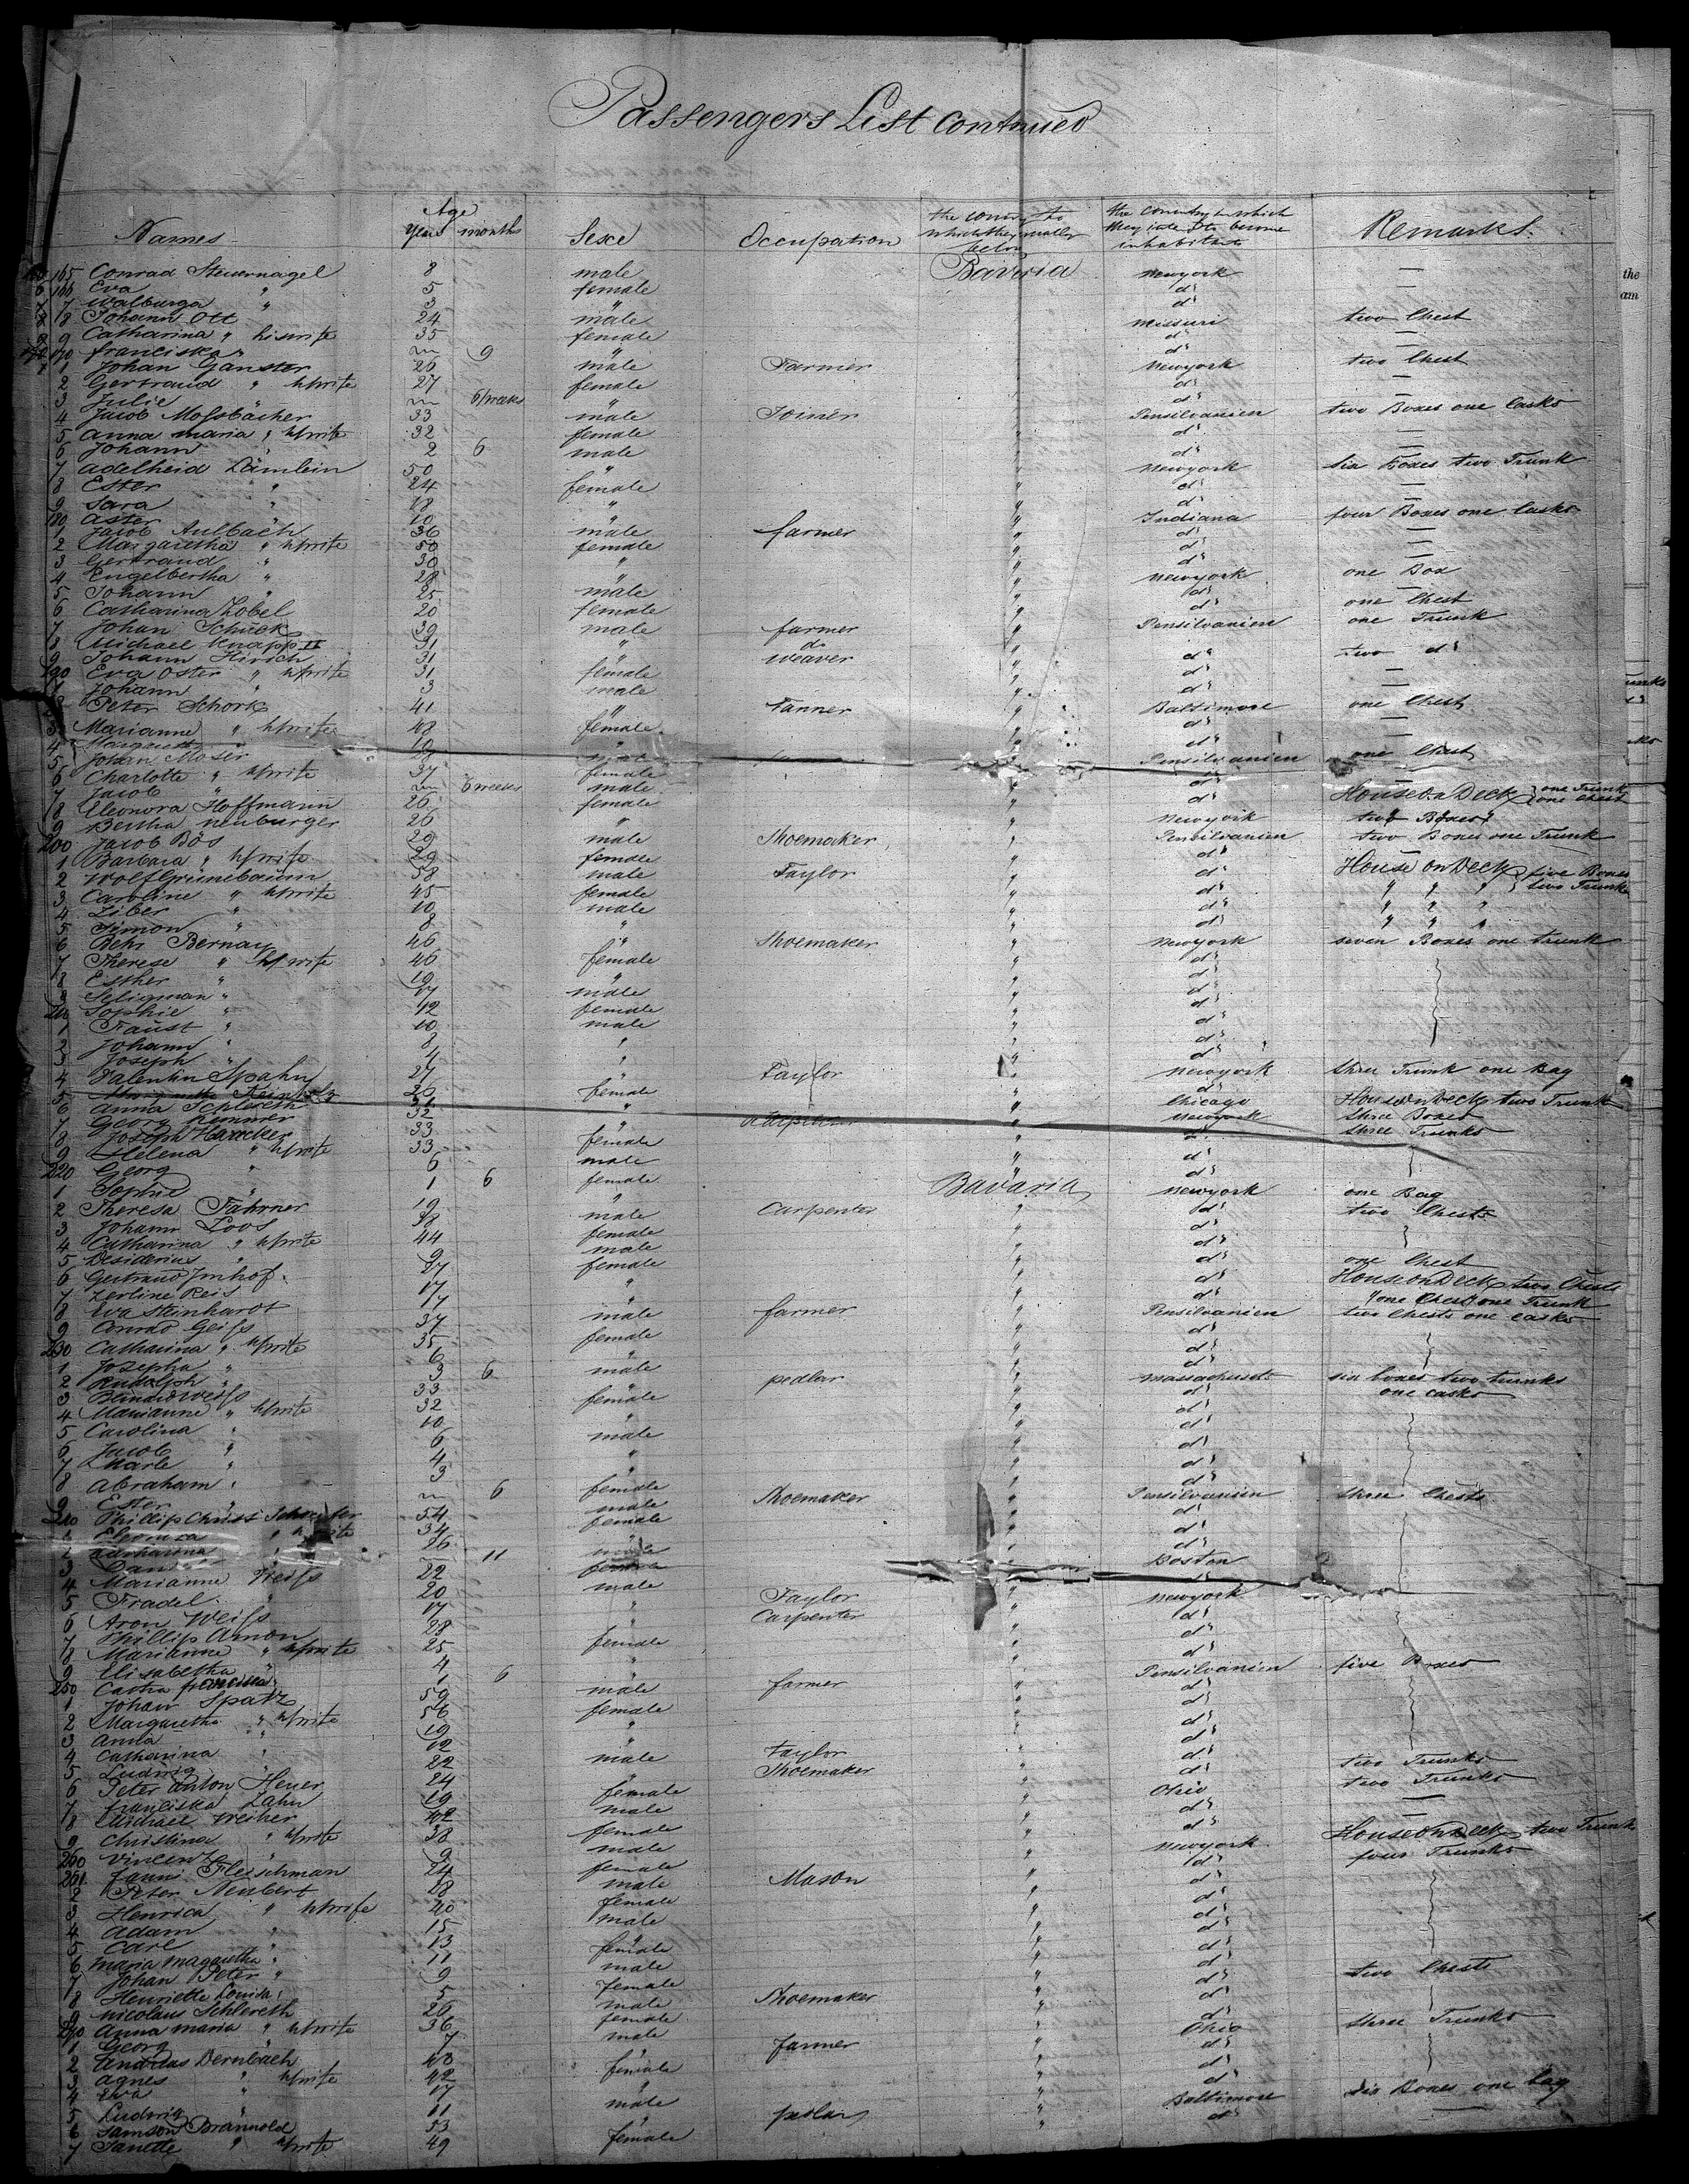 Passengers List continued
Names Age Years months Sexe Occupation the country to which they really belong the country in which they intend to become inhabitants Remarks.
165 Conrad Steuernagel 8 male Bavaria Newyork —
166 Eva " 5 female d°
7 Walburga " 3 " d°
8 Johann Ott 24 male " Missuri two Chest
9 Catharina " his wife 35 female " d° —
170 franciska " 9 " " d° —
1 Johan Ganster 26 male Farmer " Newyork two Chest
2 Gertraud " h/wife 27 female " d° —
3 Julie " 6 weeks " " d° —
4 Jacob Mossbächer 33 male Joiner " Pensilvanien two Boxes one Casks
5 anna maria " h/wife 32 female " d° —
6 Johann " 2 6 male " d° —
7 adelheid Lämlein 50 " " Newyork six Boxes two Trunk
8 Ester " 24 female " d° —
9 Sara " 18 " " d° —
180 aster " 10 "
1 Jacob Aulbach 36 male farmer " Indiana four Boxes one Casks
2 Margaretha " h/wife 50 female " d° —
3 Gertraud " 30 " " d° —
4 Engelbertha " 28 " " d°
5 Johann " 25 male " Newyork one Box
6 Catharina Zobel 20 female " d° one Chest
7 Johan Schück 39 male farmer " Pensilvanien one Trunk
8 Michael Knapp II 31 " d° "
9 Johann Hirsch 31 " Weaver " d° two d°
190 Eva Oster " h/wife 31 female " d° —
1 Johann " 3 male " d° —
2 Peter Schork 41 " Tanner " Baltimore one Chest
3 Marianne " h/wife 48 female " d° —
4 Margaretha " 19 " " d° —
5 Johan Moser 28 " Pensilvanien one Chest
6 Charlotte " h/wife 37 female " d° —
7 Jacob " 6 weeks male " d°
8 Eleonora Hoffmann 26 female " d° House on Deck one Trunk one Chest
9 Bertha Neuburger 26 " " Newyork two Boxes
200 Jacob Bös 29 male Shoemaker " Pensilvanien two Boxes one Trunk
1 Barbara " h/wife 29 female " d° —
2 Wolf Grünebaum 58 male Taylor " d° House on Deck five Boxes two Trunk
3 Caroline " h/wife 45 female " d° " " "
4 Liber " 10 male " d° " " "
5 Simon " 8 " " d° " " "
6 Behr Bernay 46 " Shoemaker " Newyork seven Boxes one trunk
7 Therese " h/wife 46 female " d°
8 Esther " 19 " " d°
9 Seligman " 17 male " d°
210 Sophie " 12 female " d°
1 Faust " 10 male " d°
2 Johann " 8 " " d°
3 Joseph " 4 " " d°
4 Valentin Spahn 27 " Taylor " Newyork three Trunk one Bag
5 26 female " d°
6 anna Schlereth 31 " " Chicago House on Deck two Trunk
7 Georg 32 " " Newyork three Boxes
8 Joseph Hamcker 33 " d° three Trunks
9 Helena " h/wife 33 female " d°
220 Georg " 6 male " d°
1 Sophie " 1 6 female Bavaria
2 Theresa Fährner 19 " " Newyork one Bag
3 Johann Loos 38 male Carpenter " d° two Chests
4 Catharina " h/wife 44 female " d°
5 Desiderius " 9 male " d°
6 Gertraud Imhof 27 female " d° one Chest
7 Zerline Reis 17 " " d° House on Deck two Chests
8 Eva Steinhardt 17 " " d° " one Chest one Trunk
9 Conrad Geiss 37 male farmer " Pensilvanien two Chests one casks
230 Catharina " h/wife 35 female " d°
1 Josepha " 6 " " d°
2 Rudolph " 3 6 male " d°
3 Weiss 33 " pedlar " Massachusets six boxes two trunks one casks
4 Marianne " h/wife 32 female " d°
5 Carolina " 10 " " d°
6 Jacob " 6 male " d°
7 Marle " 4 " " d°
8 Abraham " 3 " " d°
9 Ester " 6 female " d°
240 Phillip Christ 54 male Shoemaker " Pensilvanien three Chests
1 " h/wife 34 female " d°
2 Catharina " 26 " d°
3 11 " d°
4 Marianne Weiss 22 female " Boston
5 Fradel " 20
6 Aron Weiss 17 male Taylor " Newyork
7 Phillip Amon 28 " Carpenter " d°
8 Marianne " h/wife 25 female " d°
9 Elisabetha " 4 " " d°
250 1 6 "
1 Johan Spatz 59 male farmer " Pensilvanien five Boxes
2 Margaretha " h/wife 56 female " d°
3 Anna " 19 " " d°
4 Catharina " 12 " " d°
5 Ludwig 22 male Taylor " d° two Trunks
6 Peter Anton Heuer 24 " Shoemaker " d° two Trunks
7 franciska Zahn 19 female " Ohio —
8 Michael Weiher 42 male " d° —
9 Christina " h/wife 38 female " d°
260 Vincenz " 9 male
261 Fanni Fleischman 24 female " Newyork House on Deck two Trunk
2 Peter Neubert 48 male Mason " d° four Trunks
3 Henrica " h/wife 40 female " d°
4 Adam " 15 male " d°
5 Carl " 13 " " d°
6 Maria Magaretha " 11 female " d°
7 Johan Peter " 9 male " d°
8 Henriette Louisa " 5 female " d°
9 Nicolaus Schlereth 26 male Shoemaker " d° two Chests
270 Anna maria " h/wife 36 female " d°
1 Georg " 7 male " d°
2 Andreas Dernbach 43 " farmer " Ohio three Trunks
3 Agnes " h/wife 42 female " d°
4 Eva " 17 " " d°
5 Ludwig " 11 male " d°
6 Samson Brannold 53 " pedlar " Baltimore six Boxes one bag
7 Janette " h/wife 49 female " d° —
the
am